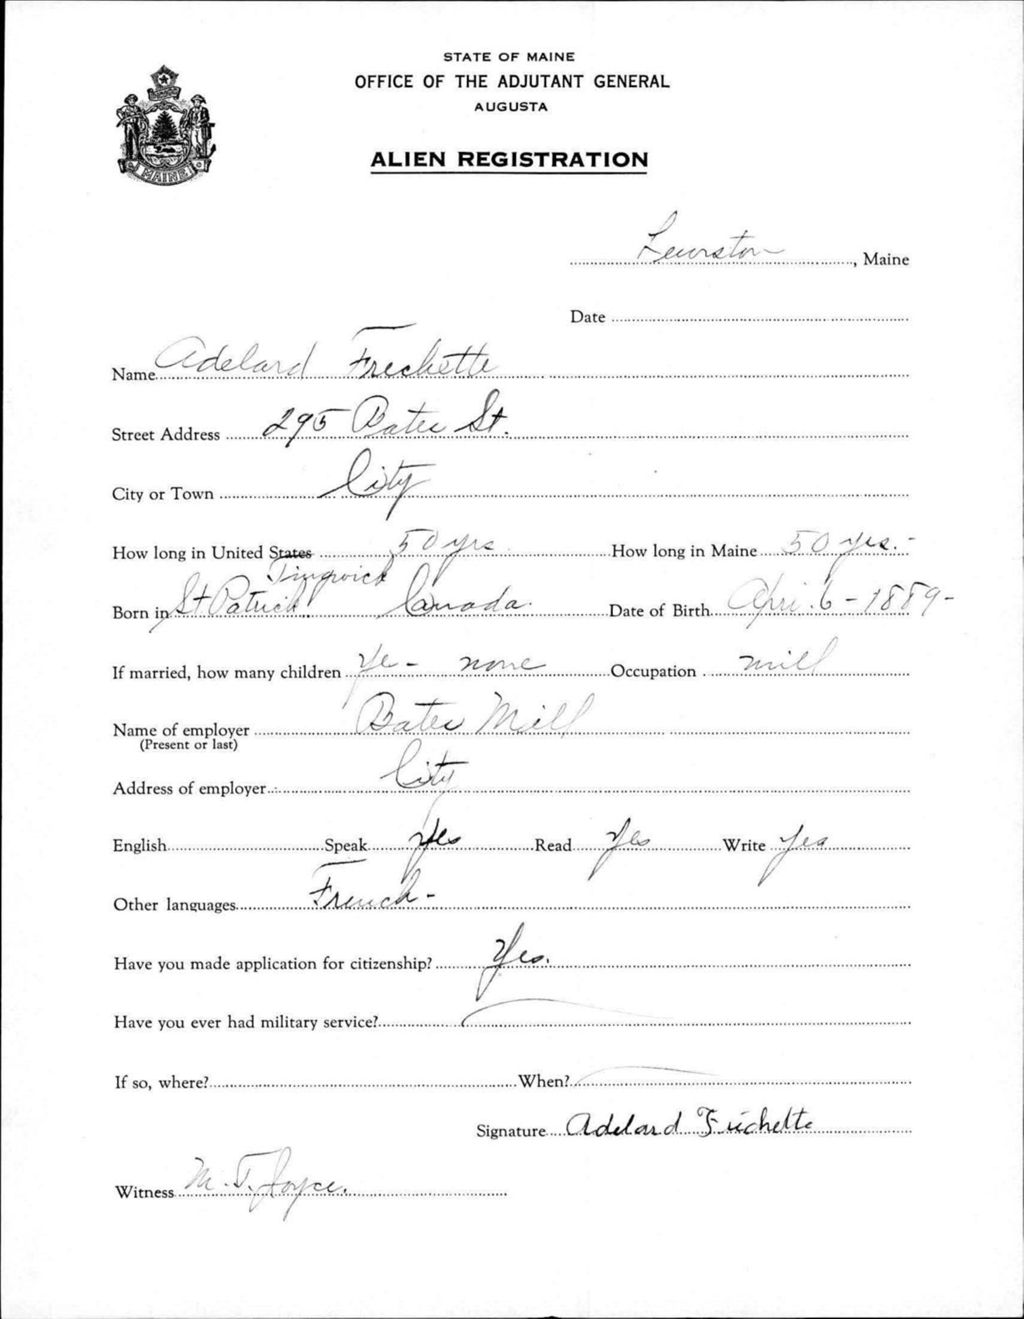 STATE OF MAINE
OFFICE OF THE ADJUTANT GENERAL
AUGUSTA
ALIEN REGISTRATION
MAINE
Lewiston, Maine
Date
Name Adelard Frechette
Street Address 295 Bates St.
City or Town City
How long in United States 50 yrs. How long in Maine 50 yrs.
Tingwick
Born in St Patrick Canada. Date of Birth Apri. 6 - 1889 -
If married, how many children Ye - none Occupation mill
Name of employer Bates Mill
(Present or last)
Address of employer City
English Speak Yes Read Yes Write Yes
Other languages French -
Have you made application for citizenship? Yes.
Have you ever had military service?
If so, where? When?
Signature Adelard Frechette
Witness M. T. Joyce.